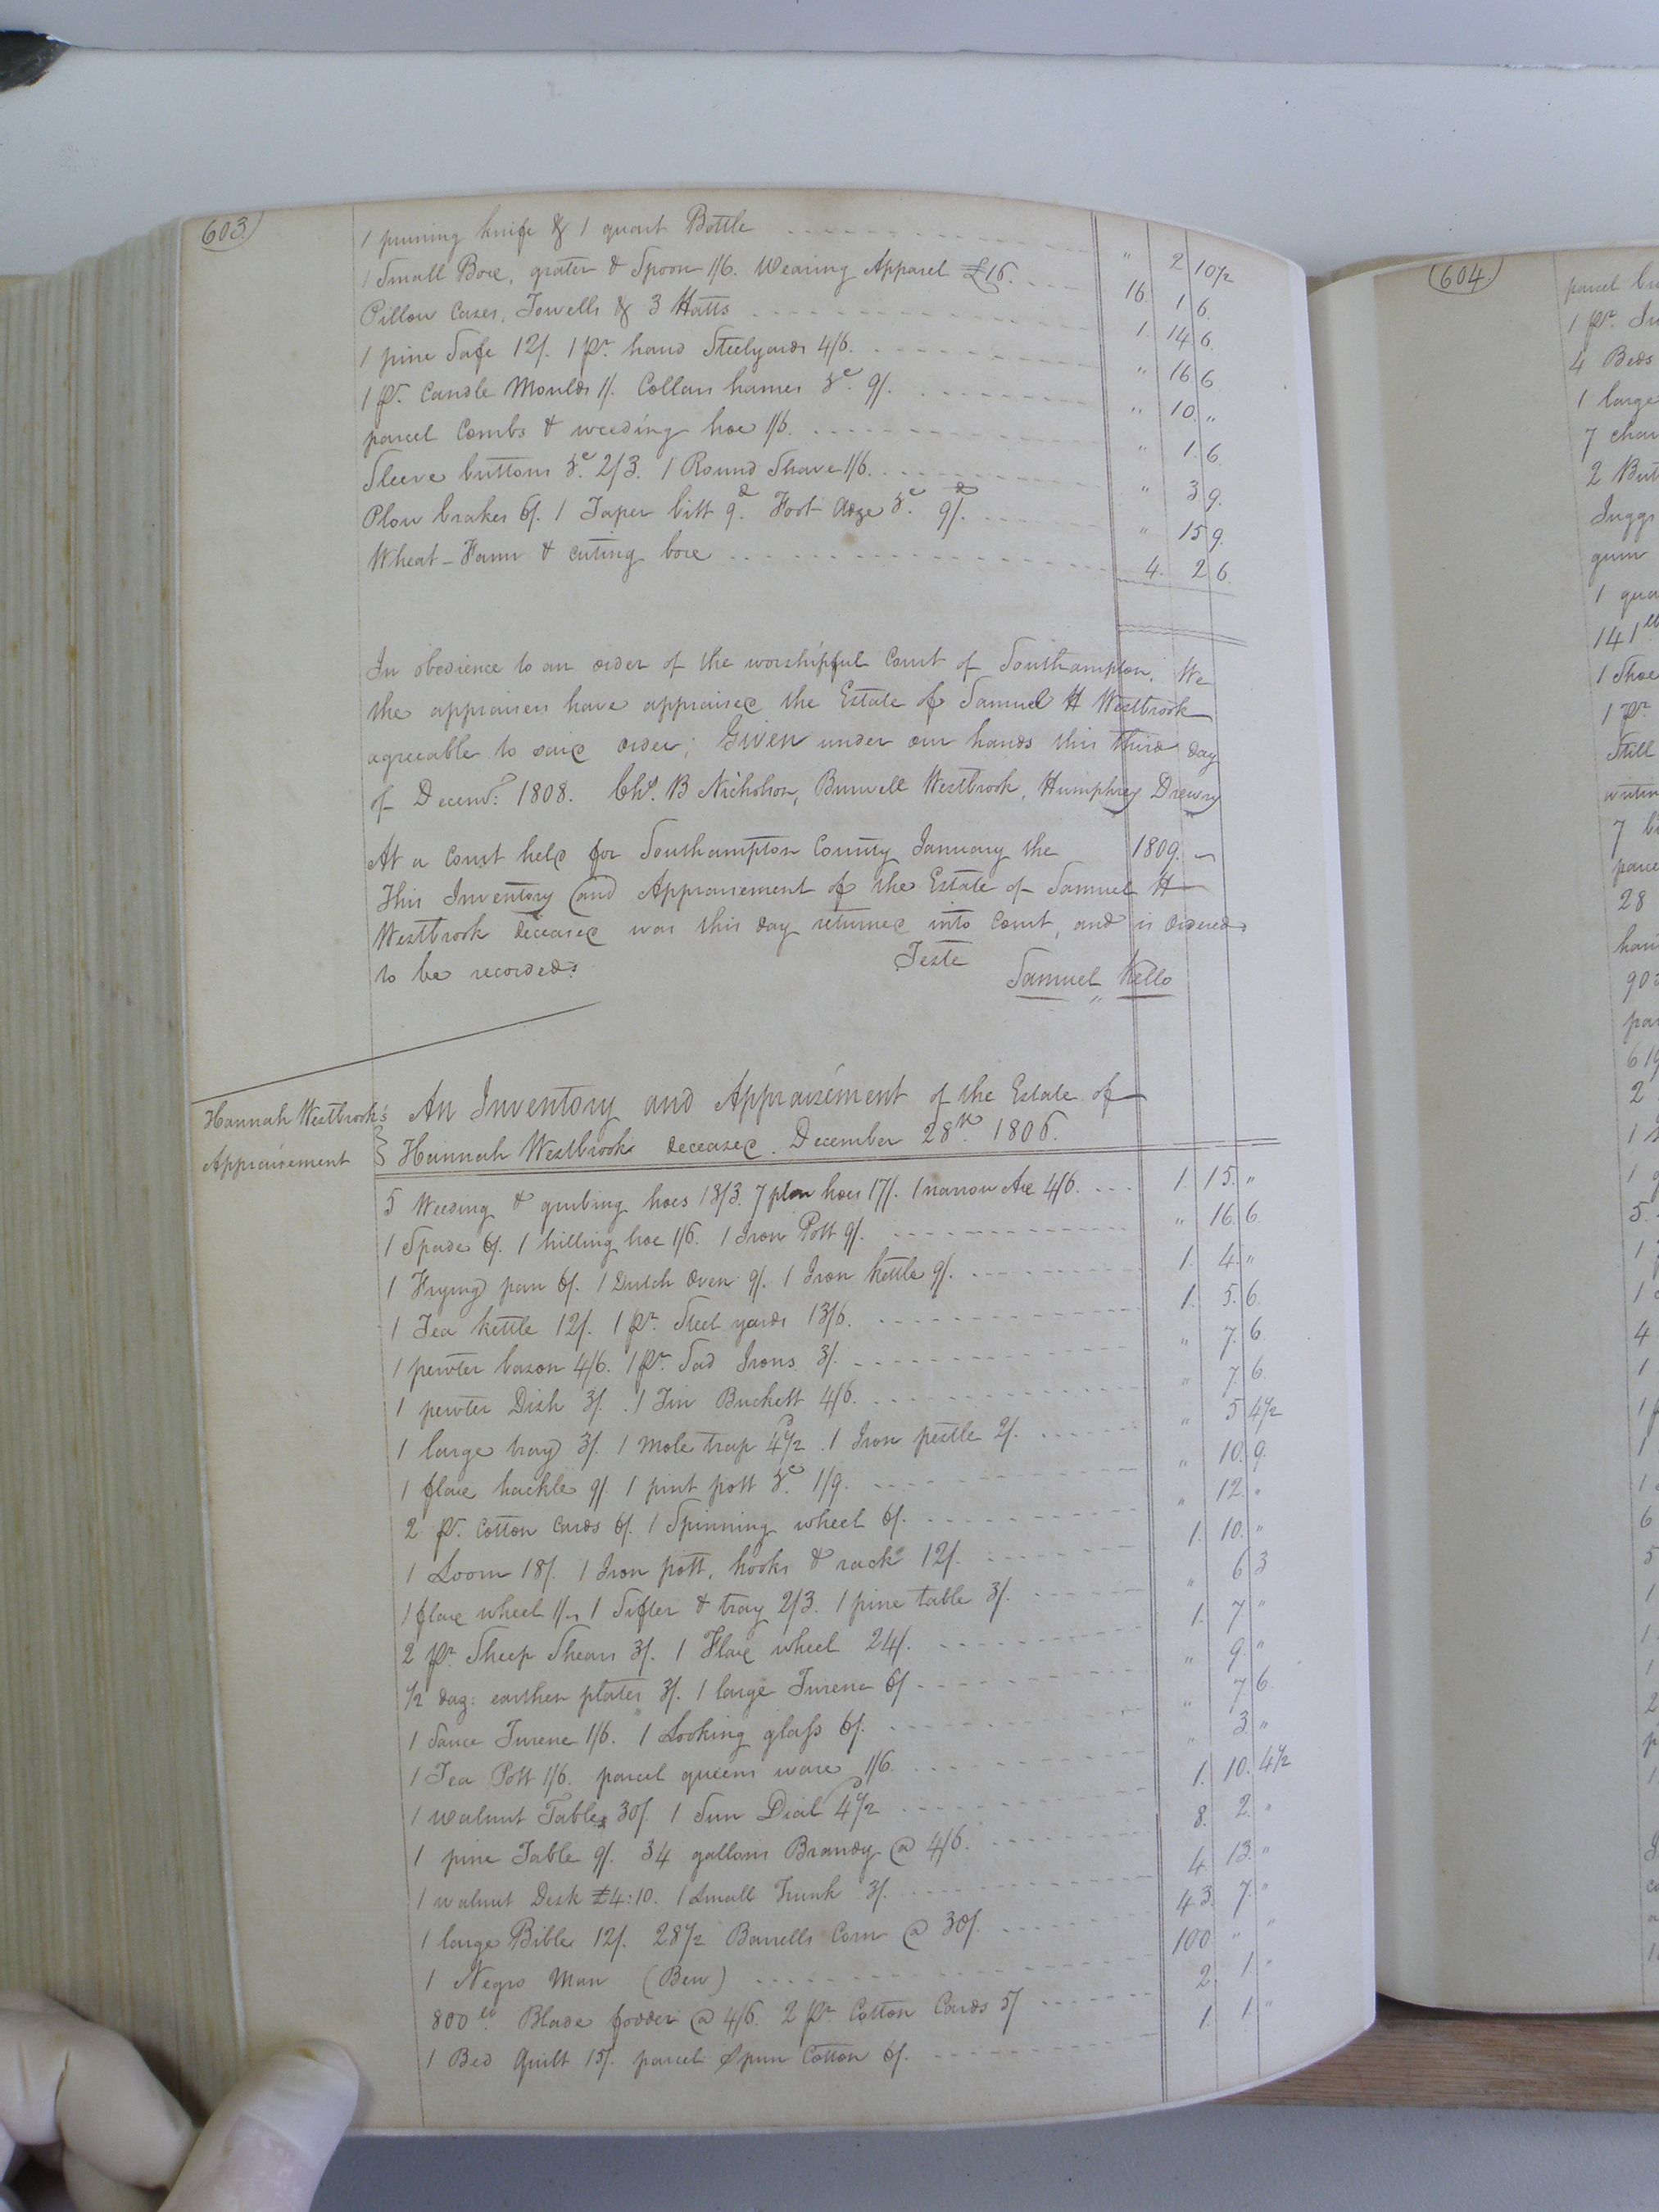 603.
1 pruning knife & 1 quart Bottle " 2 10½
1 Small Box, grater & Spoon 1/6. Wearing Apparel £16. 16. 1 6.
Pillow Cases, Towells & 3 Hatts 1 14 6.
1 pine Safe 12/. 1 pr. hand Steelyards 4/6. " 16 6
1 pr. Candle Moulds 1/. Collars hames &c. 9/. " 10. "
parcel Combs & weeding hoe 1/6. " 1. 6.
Sleeve buttons &c. 2/3. 1 Round Shave 1/6. " 3 9.
Plow brakes 6/. 1 Taper bitt 9d. Foot Adze &c. 9/. " 15 9.
Wheat-Fann & cuting box 4. 2 6.
In obedience to an order of the worshipful Court of Southampton. We
the appraisers have appraised the Estate of Samuel H Westbrook
agreeable to said order; Given under our hands this third day
of Decemr: 1808. Chs. B Nicholson, Burwell Westbrook, Humphrey Drewry
At a Court held for Southampton County January the 1809.
This Inventory and Appraisement of the Estate of Samuel H
Westbrook deceased was this day returned into Court, and is ordered
to be recorded.
Teste
Samuel Kello
Hannah Westbrook's
Appraisement
An Inventory and Appraisement of the Estate of
Hannah Westbrook deceased. December 28th. 1806.
5 Weeding & grubing hoes 13/3. 7 plow hoes 17/. 1 narrow Axe 4/6. 1. 15. "
1 Spade 6/. 1 hilling hoe 1/6. 1 Iron Pott 9/. " 16. 6.
1 Frying pan 6/. 1 Dutch Oven 9/. 1 Iron kettle 9/. 1. 4. "
1 Tea kettle 12/. 1 pr. Steel yards 13/6. 1. 5. 6.
1 pewter bason 4/6. 1 pr. Sad Irons 3/. " 7. 6.
1 pewter Dish 3/. 1 Tin Buckett 4/6. " 7. 6.
1 large tray 3/. 1 mole trap 4½d. 1 Iron pestle 2/. " 5 4½
1 flax hackle 9/. 1 pint pott &c. 1/9. " 10. 9.
2 pr. Cotton Cards 6/. 1 Spinning wheel 6/. " 12. "
1 Loom 18/. 1 Iron pott, hooks & rack 12/. 1. 10. "
1 flax wheel 1/. 1 Sifter & tray 2/3. 1 pine table 3/. " 6 3
2 pr. Sheep Shears 3/. 1 Flax wheel 24/. 1. 7. "
½ doz: earthen plates 3/. 1 large Tureen 6/ " 9. "
1 Sauce Turene 1/6. 1 Looking glass 6/. " 7. 6.
1 Tea Pott 1/6. parcel queens ware 1/6. " 3. "
1 walnut Table 30/. 1 Sun Dial 4½d 1. 10. 4½
1 pine Table 9/. 34 gallons Brandy @ 4/6. 8. 2. "
1 walnut Desk £4:10. 1 Small Trunk 3/. 4. 13. "
1 large Bible 12/. 28½ Barrells Corn @ 30/. 43. 7. "
1 Negro Man (Ben) 100 " "
800 lb. Blade fodder @ 4/6. 2 pr. Cotton Cards 5/ 2. 1. "
1 Bed Quilt 15/. parcel Spun Cotton 6/. 1. 1. "
604.
1 pr.
4 Beds
1 large
7
2
Juggs
gum
1
141
1 Shoe
1 pr.
Still
7
28
2
5.
4
1
6
5
1
2